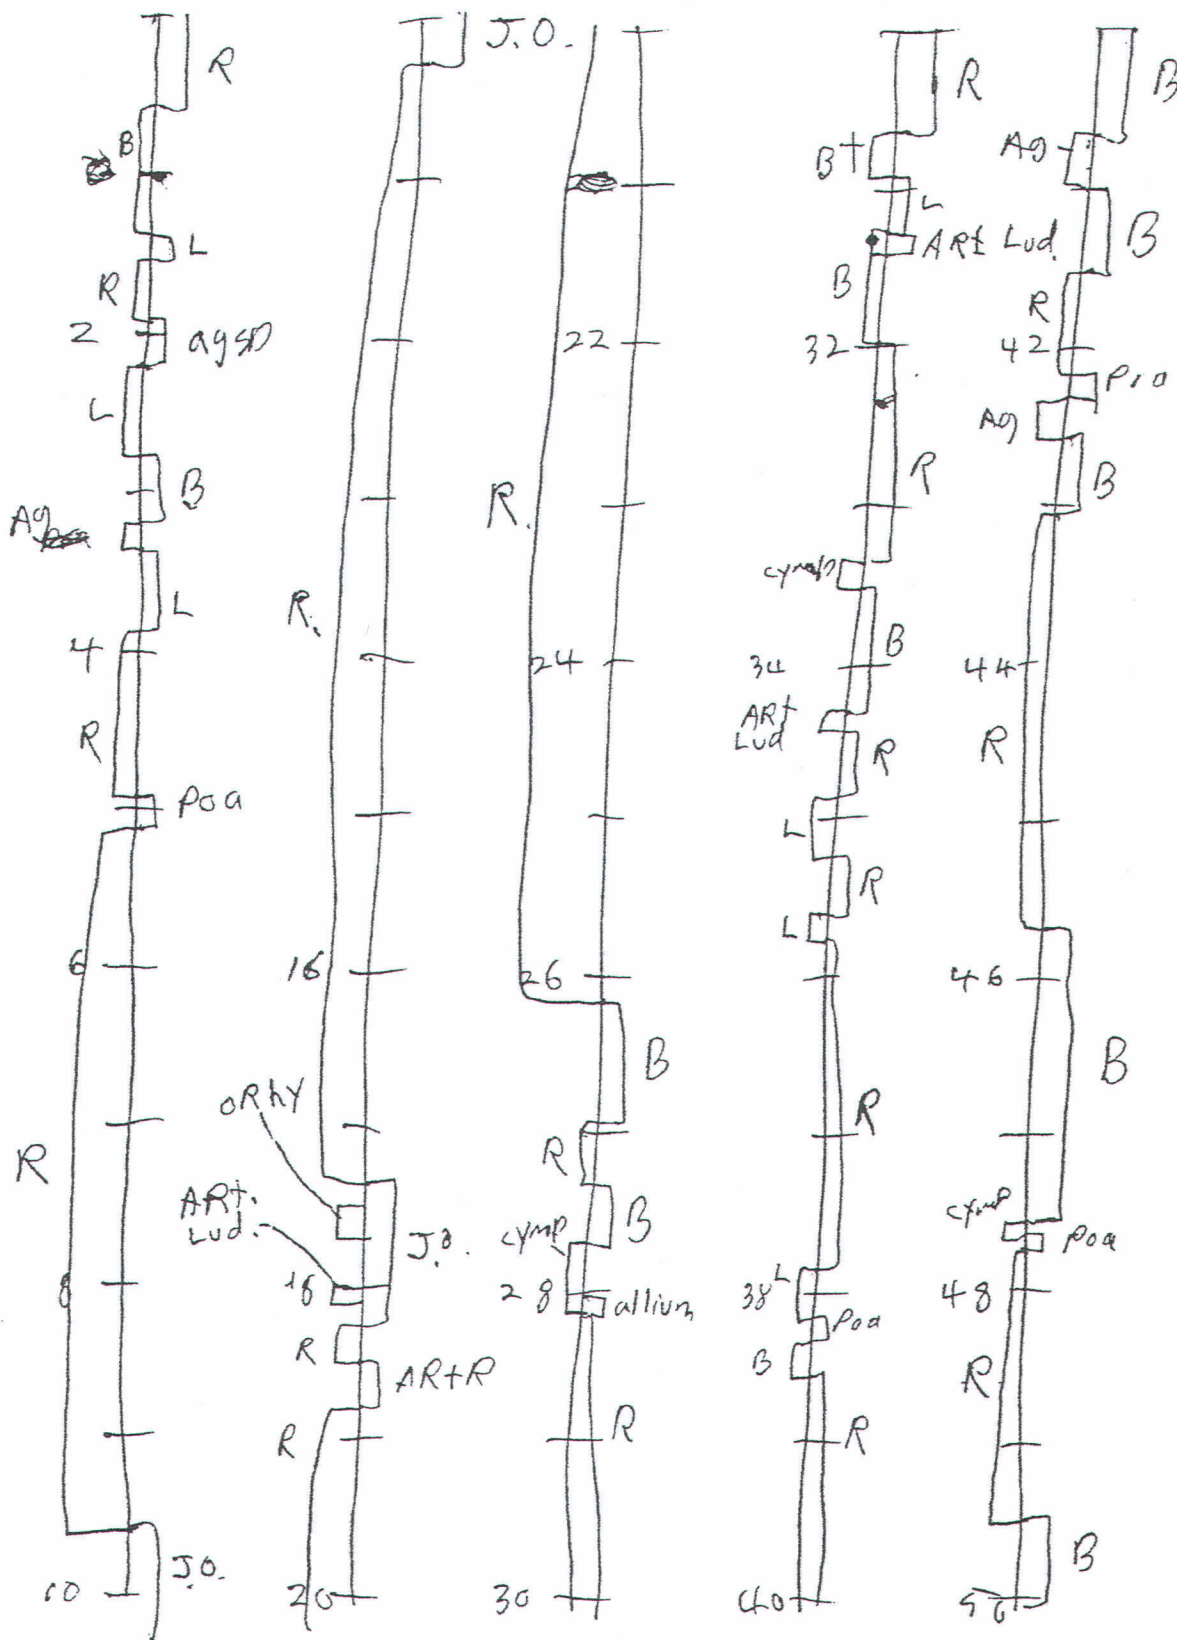 R
B
L
R
2
agsp
L
B
Ag
L
4
R
Poa
6
R
8
J.O.
10
J.O.
R.
16
ORhY
ARt.
Lud.
J.O.
18
R
ARtR
R
20
22
R.
24
26
B
R
B
cymp
28
allium
R
30
R
B+
L
ARt Lud.
B
32
R
cymp
B
34
ARt
Lud
R
L
R
L
R
L
38
Poa
B
R
40
B
Ag
B
R
42
Ag
B
44
R
46
B
cymp
Poa
48
R
B